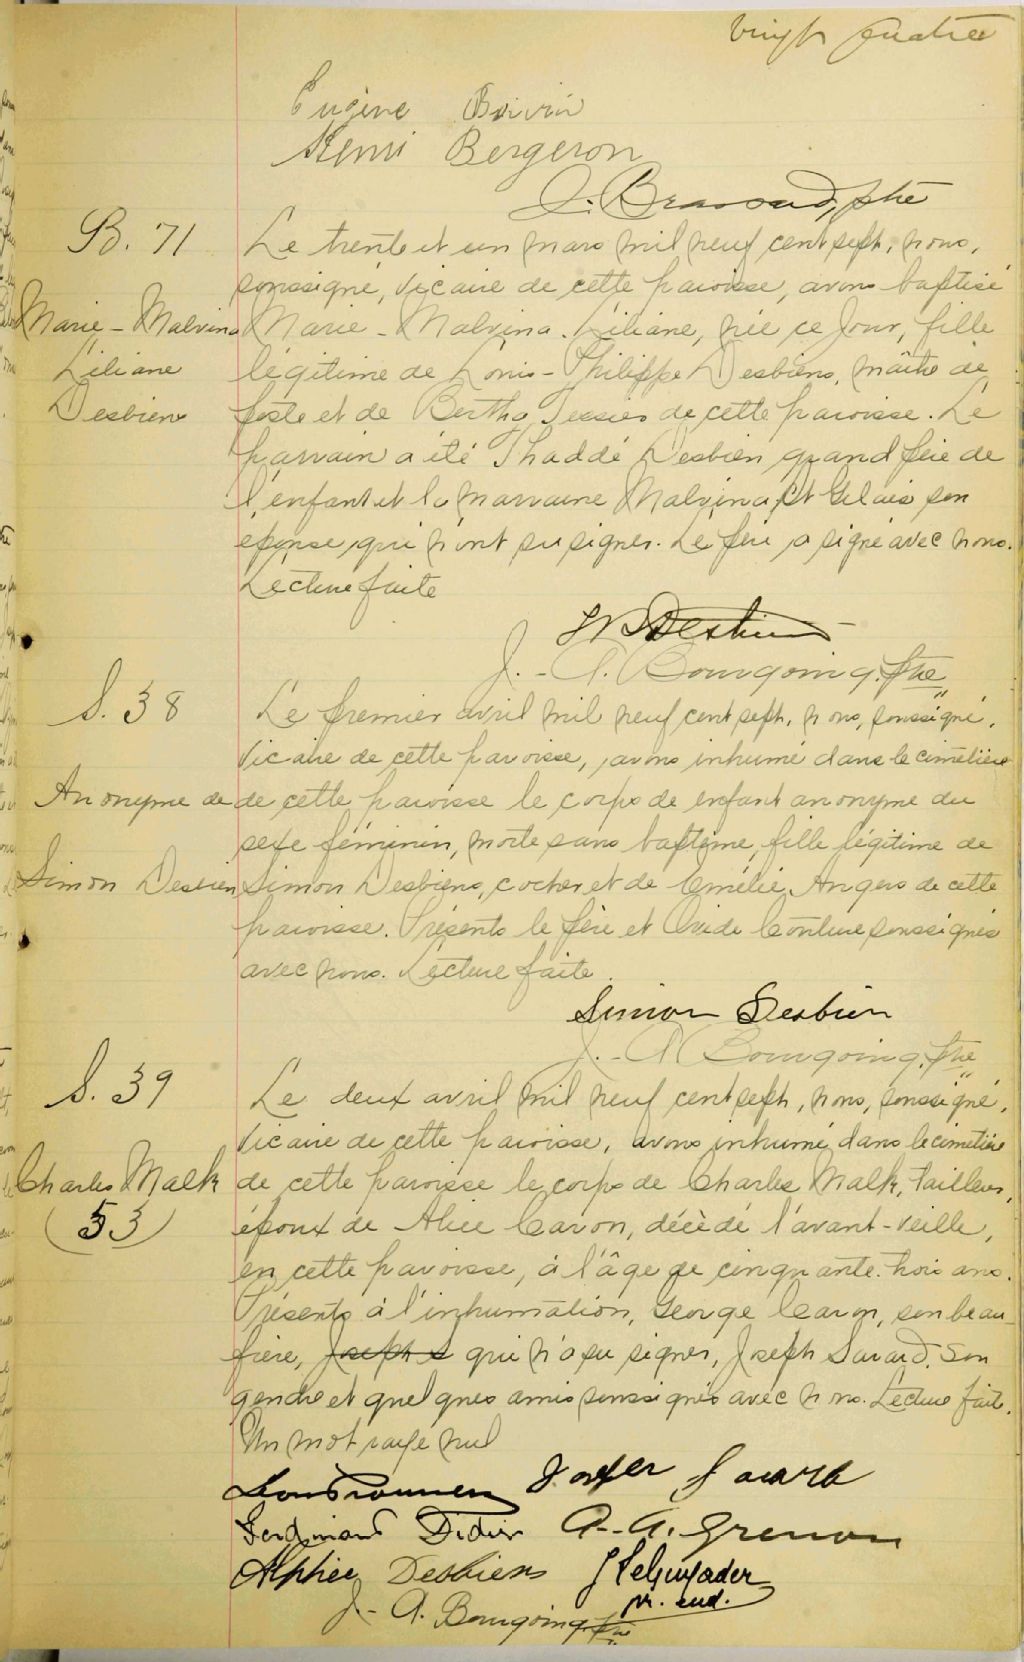 vingt quatre
Eugène Boivin
Rémi Bergeron
J. Brassard, ptre
B. 71
Le trente et un mars mil neuf cent sept, nous,
soussigné, vicaire de cette paroisse, avons baptisé
Marie - Malvina
Marie - Malvina - Liliane, née ce jour, fille
Liliane
légitime de Louis - Philippe Desbiens, maître de
Desbiens
poste et de Bertha Tessier de cette paroisse. Le
parrain a été Thaddé Desbien grand père de
l'enfant et la marraine Malvina St Gelais son
épouse, qui n'ont su signer. Le père a signé avec nous.
Lecture faite
Desbiens
J. - A. Bourgoing, ptre
S. 38
Le premier avril mil neuf cent sept, nous, soussigné,
vicaire de cette paroisse, avons inhumé dans le cimetière
Anonyme de
de cette paroisse le corps de enfant anonyme du
sexe féminin, morte sans baptême, fille légitime de
Simon Desbien
Simon Desbiens, cocher et de Emélie Angers de cette
paroisse. Présents le père et Ovide Couture soussignés
avec nous. Lecture faite.
Simon Desbien
J. - A Bourgoing, ptre
S. 39
Le deux avril mil neuf cent sept, nous, soussigné,
vicaire de cette paroisse, avons inhumé dans le cimetière
Charles Malk
de cette paroisse le corps de Charles Malk, tailleur,
(53)
époux de Alice Caron, décédé l'avant-veille,
en cette paroisse, à l'âge de cinquante-trois ans.
Présents à l'inhumation, George Caron, son beau-
frère, Joseph S qui n'a su signer, Joseph Savard, son
gendre et quelques amis soussignés avec nous. Lecture faite.
Un mot rayé nul
Josef Savard
Ferdinand Didier A. - A. Grenon
Alphée Desbiens J LeGuyader
pr. eud.
J. - A. Bourgoing, ptre